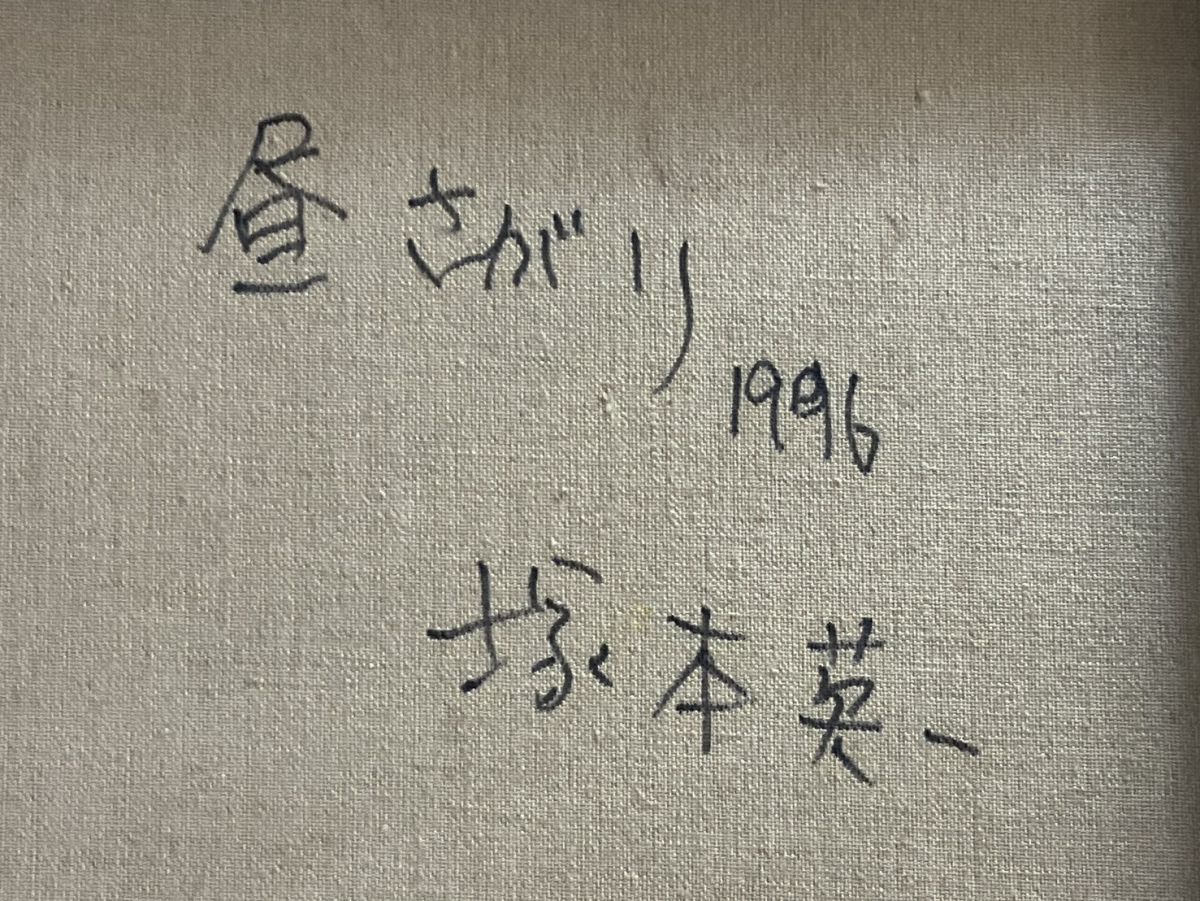 昼さがり
1996
塚本英一